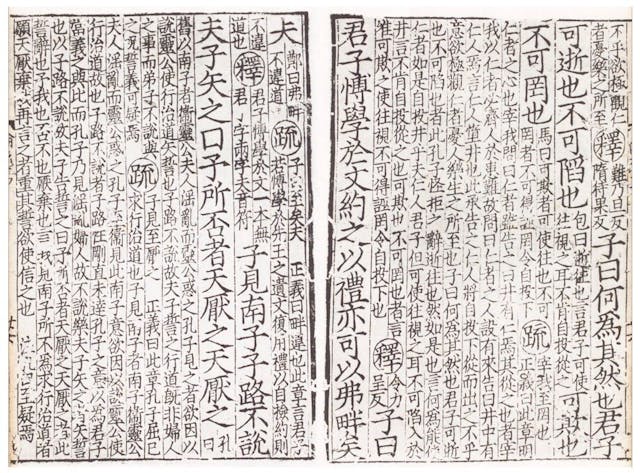 不乎欲極觀仁
者憂樂之所至
釋
難乃旦反
隋待果反
子曰何為其然也君子
可逝也不可陷也
包曰逝往也言君子可使
往視之耳不肯自投從之
可欺也
不可罔也
馬曰可欺者可使往也不可
罔者不可得誣罔令自投下
疏
宰我至罔也
正義曰此章明
仁者之心也宰我問曰仁者雖告之曰井有仁焉其從之也者宰
我以仁者必濟人於患難故問曰仁者之人設有來告曰井中有
仁人焉言仁人墮井也此承告之仁人將自投下從而出之不乎
意欲極觀仁者憂人樂生之所至也子曰何為其然也君子可逝
也不可陷也者此孔子怪拒之辭逝往也然如是也言何為能使
仁者如是自投井乎夫仁人君子但可使往視之耳不可陷入於
井言不肯自投從之也可欺也不可罔也者言
唯可欺之使往視不可得誣罔令自投下也
釋
令力
呈反
子曰
君子博學於文約之以禮亦可以弗畔矣
夫
鄭曰弗畔
不違道
疏
子曰至矣夫 正義曰畔違也此章言君子
若博學於先王之遺文復用禮以自檢約則
不違
道也
釋
君子博學於文一本無
君子字兩得矣夫音符
子見南子子路不說
夫子矢之曰予所否者天厭之天厭之
孔
舊以南子者衛靈公夫人淫亂而靈公惑之孔子見之者欲因以
說靈公使行治道矢誓也子路不說故夫子誓之行道既非婦人
之事而弟子不說與
之呪誓義可疑焉
疏
子見至厭之 正義曰此章孔子屈己
求行治道也子見南子者南子衛靈公
夫人淫亂而靈公惑之孔子至衛見此南子意欲因以說靈公使
行治道故也子路不說者子路性剛直未達孔子之意以為君子
當義之與比而孔子乃見淫亂婦人故不說樂夫子矢之者矢誓
也以子路不說故夫子告誓之曰予所否者天厭之天厭之者此
誓辭也予我也否不也厭棄也言我見南子所不為求行治道者
願天厭棄我再言之者重其誓欲使信之也 注孔曰至疑焉